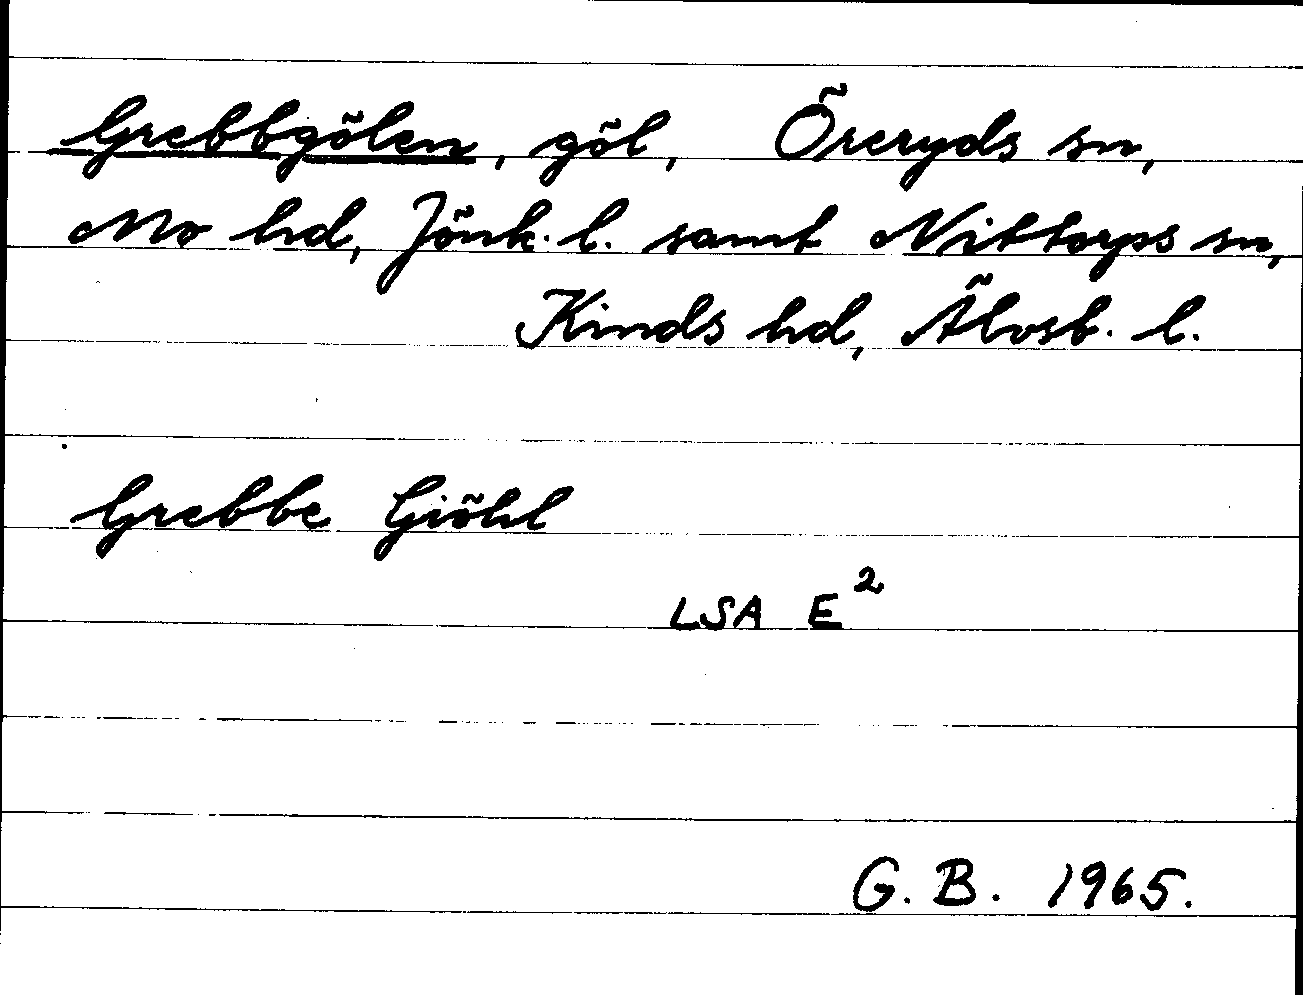 Grebbgölen, göl, Öreryds sn,
Mo hd, Jönk. l. samt Nittorps sn,
Kinds hd, Älvsb. l.
Grebbe Giöhl
LSA E²
G. B. 1965.